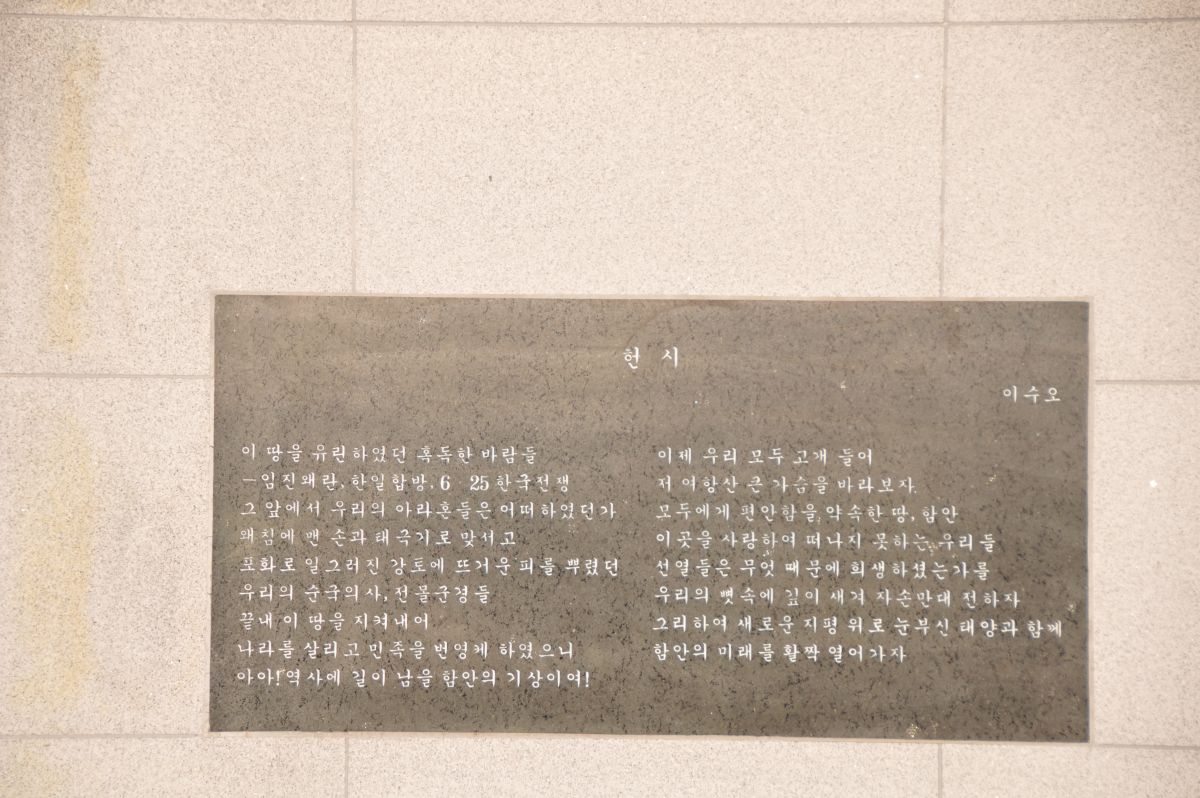 헌 시
이수오
이 땅을 유린하였던 혹독한 바람들
-임진왜란, 한일합방, 6 25 한국전쟁
그 앞에서 우리의 아라혼들은 어떠하였던가
왜침에 맨 손과 태극기로 맞서고
포화로 일그러진 강토에 뜨거운 피를 뿌렸던
우리의 순국의사, 전몰군경들
끝내 이 땅을 지켜내어
나라를 살리고 민족을 번영케 하였으니
아아! 역사에 길이 남을 함안의 기상이여!
이제 우리 모두 고개 들어
저 여항산 큰 가슴을 바라보자.
모두에게 편안함을 약속한 땅, 함안
이곳을 사랑하여 떠나지 못하는 우리들
선열들은 무엇 때문에 희생하셨는가를
우리의 뼛속에 깊이 새겨 자손만대 전하자
그리하여 새로운 지평 위로 눈부신 태양과 함께
함안의 미래를 활짝 열어가자